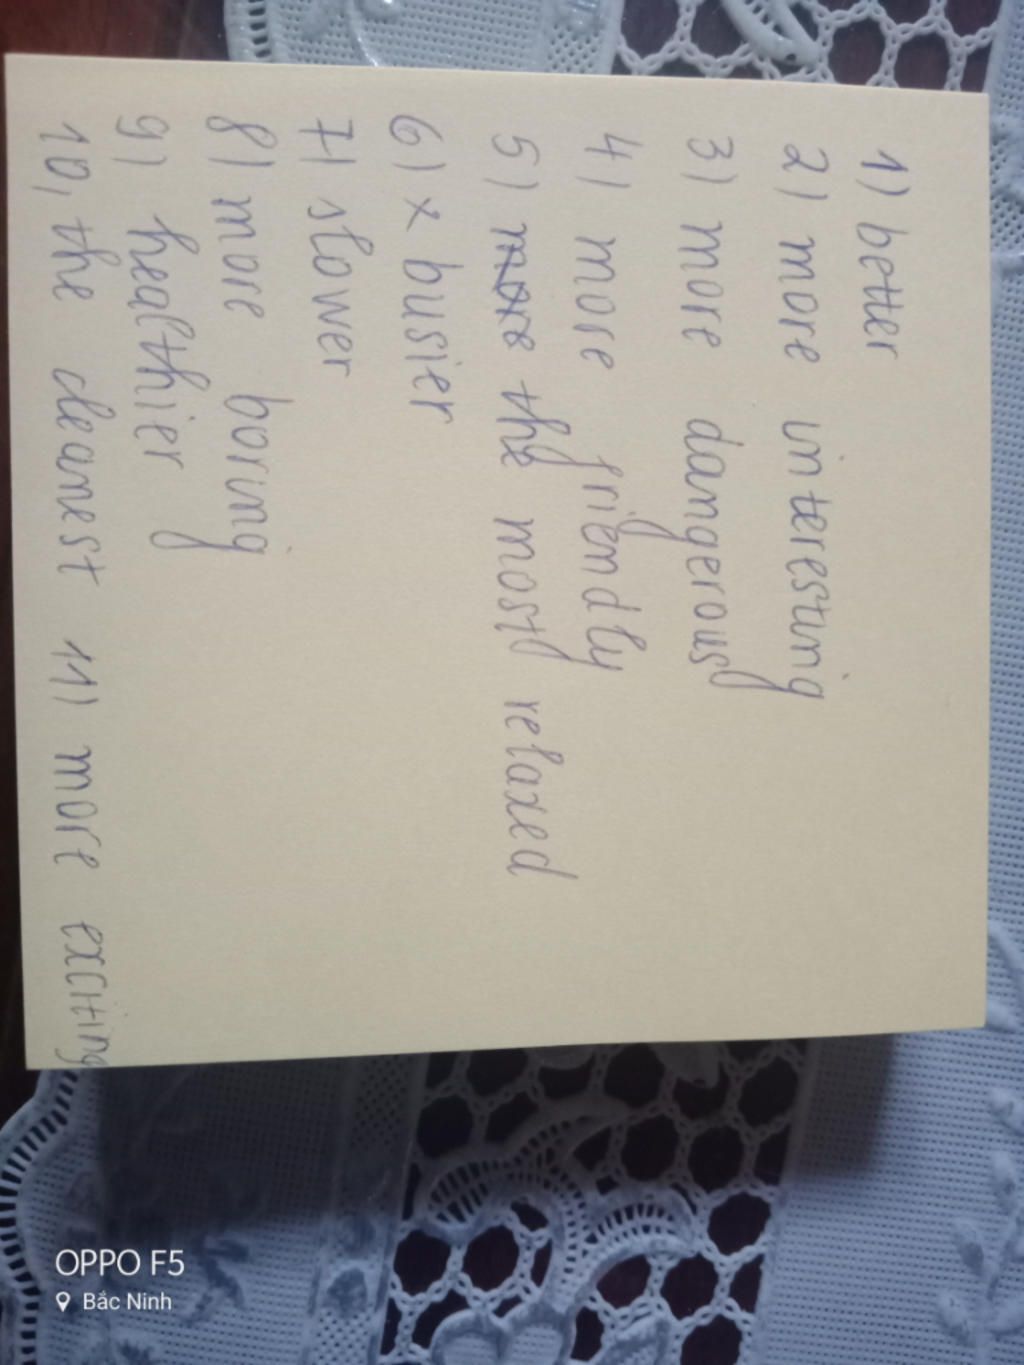 1) better
2) more interesting
3) more dangerous
4) more friendly
5) more the most relaxed
6) x busier
7) slower
8) more boring
9) healthier
10, the cleanest 11) more exciting
OPPO F5
Bắc Ninh